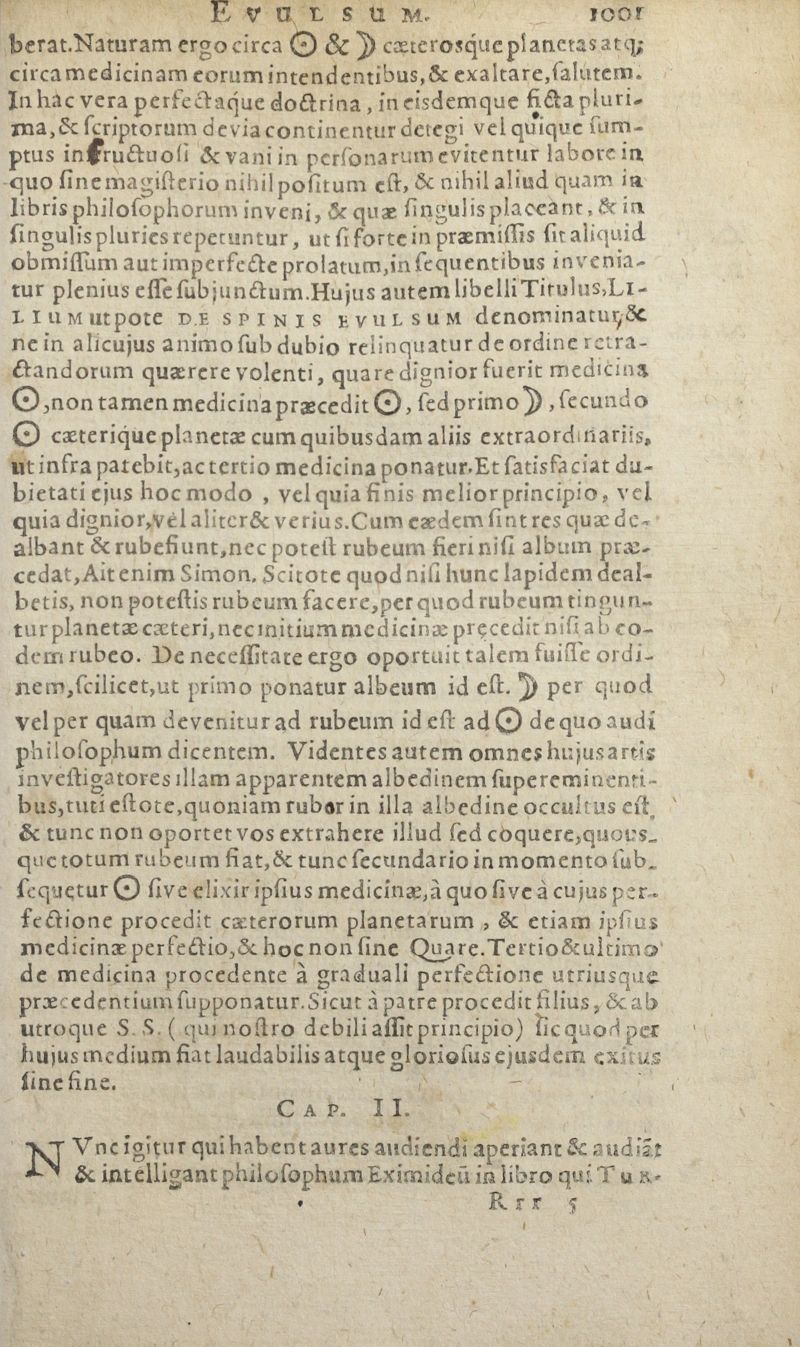 EVULSUM. 1001
berat. Naturam ergo circa ☉ & ☽ cæterosque planetas atq;
circa medicinam eorum intendentibus, & exaltare, salutem.
In hac vera perfectaque doctrina, in eisdemque ficta pluri-
ma, & scriptorum devia continentur detegi vel quique sum-
ptus infructuosi & vani in personarum evitentur labore in
quo sine magisterio nihil positum est, & nihil aliud quam in
libris philosophorum inveni, & quæ singulis placeant, & in
singulis pluries repetuntur, ut si forte in præmissis sit aliquid
obmissum aut imperfecte prolatum, in sequentibus invenia-
tur plenius esse subjunctum. Hujus autem libelli Titulus, LI-
LIUM utpote DE SPINIS EVULSUM denominatur, &
ne in alicujus animo sub dubio relinquatur de ordine retra-
ctandorum quærere volenti, quare dignior fuerit medicina
☉, non tamen medicina præcedit ☉, sed primo ☽, secundo
☉ cæterique planetæ cum quibusdam aliis extraordinariis,
ut infra patebit, ac tertio medicina ponatur. Et satisfaciat du-
bietati ejus hoc modo, vel quia finis melior principio, vel
quia dignior, vel aliter & verius. Cum eædem sint res quæ de-
albant & rubefiunt, nec potest rubeum fieri nisi album præ-
cedat, Ait enim Simon. Scitote quod nisi hunc lapidem deal-
betis, non potestis rubeum facere, per quod rubeum tingun-
tur planetæ cæteri, nec initium medicinæ pręcedit nisi ab eo-
dem rubeo. De necessitate ergo oportuit talem fuisse ordi-
nem, scilicet, ut primo ponatur albeum id est. ☽ per quod
vel per quam devenitur ad rubeum id est ad ☉ de quo audi
philosophum dicentem. Videntes autem omnes hujus artis
investigatores illam apparentem albedinem supereminenti-
bus, tuti estote, quoniam rubor in illa albedine occultus est,
& tunc non oportet vos extrahere illud sed coquere, quous-
que totum rubeum fiat, & tunc secundario in momento sub-
sequetur ☉ sive elixir ipsius medicinæ, à quo sive à cujus per-
fectione procedit cæterorum planetarum, & etiam ipsius
medicinæ perfectio, & hoc non sine Quare. Tertio & ultimo
de medicina procedente à graduali perfectione utriusque
præcedentium supponatur. Sicut à patre procedit filius, & ab
utroque S. S. (qui nostro debili assit principio) sic quod per
hujus medium fiat laudabilis atque gloriosus ejusdem exitus
sine fine.
CAP. II.
NVnc igitur qui habent aures audiendi aperiant & audiãt
& intelligant philosophum Eximideũ in libro qui TUR-
Rrr 5